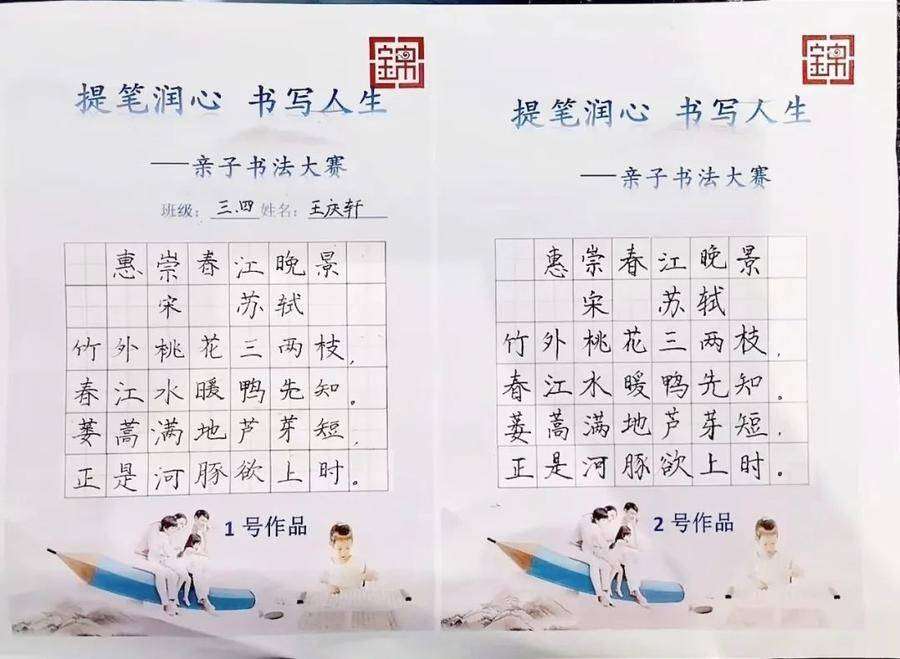 錦
提笔润心 书写人生
——亲子书法大赛
班级：三.四 姓名：王庆轩
惠崇春江晚景
宋 苏轼
竹外桃花三两枝，
春江水暖鸭先知。
蒌蒿满地芦芽短，
正是河豚欲上时。
1号作品
錦
提笔润心 书写人生
——亲子书法大赛
惠崇春江晚景
宋 苏轼
竹外桃花三两枝，
春江水暖鸭先知。
蒌蒿满地芦芽短，
正是河豚欲上时。
2号作品